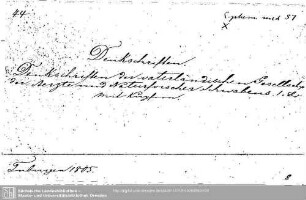 44.
Denkschriften.
Denkschriften der vaterländischen Gesellschaft
der Aerzte und Naturforscher Schwabens. 1. Bd.
Mit Kupfern.
Tübingen 1805.
8
Sächsische Landesbibliothek -
Staats- und Universitätsbibliothek Dresden